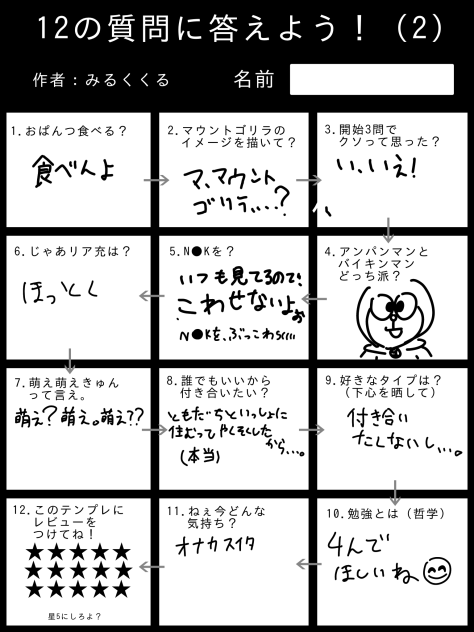 12の質問に答えよう！（2）
作者：みるくくる
名前
1.おぱんつ食べる？
食べんよ
2.マウントゴリラの
イメージを描いて？
マ、マウント
ゴリラ、、、？
3.開始3問で
クソって思った？
い、いえ！
4.アンパンマンと
バイキンマン
どっち派？
5.N●Kを？
いつも見てるので！
こわせないよぉ
N●Kを、ぶっこわら
6.じゃあリア充は？
ほっとく
7.萌え萌えきゅん
って言え。
萌え？萌え。萌え??
8.誰でもいいから
付き合いたい？
ともだちといっしょに
住むってやくそくした
から…。
(本当)
9.好きなタイプは？
（下心を晒して）
付き合い
たくないし…。
10.勉強とは（哲学）
4んで
ほしいね
11.ねぇ今どんな
気持ち？
オナカスイタ
12.このテンプレに
レビューを
つけてね！
★★★★★
★★★★★
★★★★★
星5にしろよ？